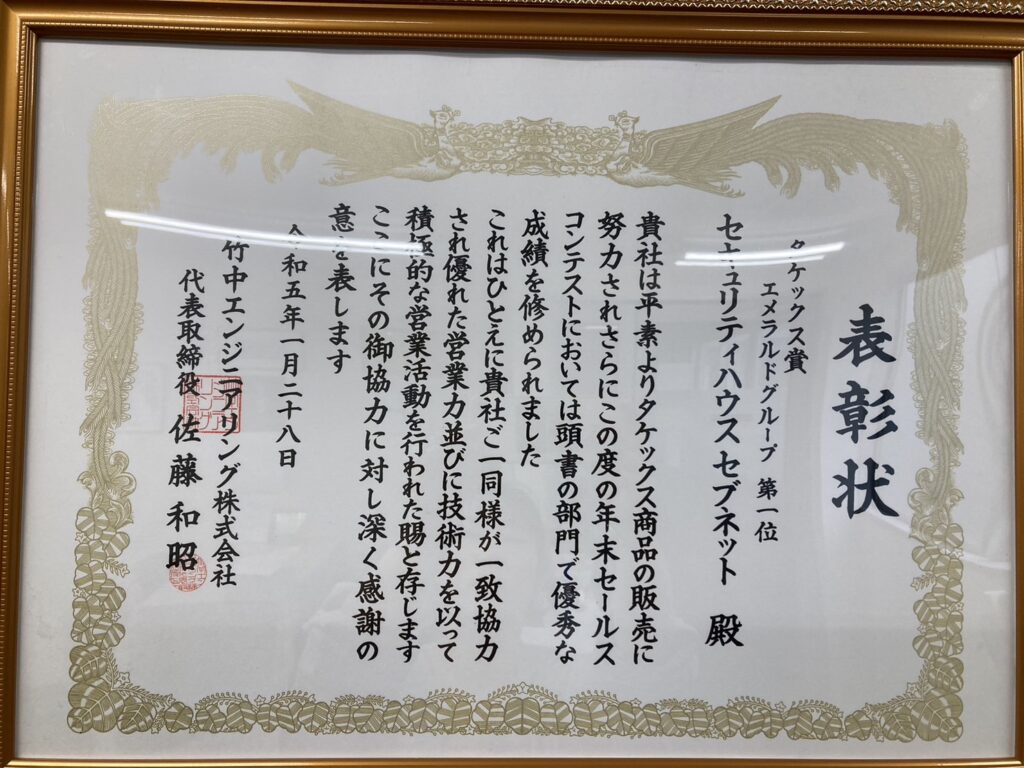 表彰状
タケックス賞
エメラルドグループ 第一位
セキュリティハウス セブネット 殿
貴社は平素よりタケックス商品の販売に
努力されさらにこの度の年末セールス
コンテストにおいては頭書の部門で優秀な
成績を修められました
これはひとえに貴社ご一同様が一致協力
され優れた営業力並びに技術力を以って
積極的な営業活動を行われた賜と存じます
ここにその御協力に対し深く感謝の
意を表します
令和五年一月二十八日
竹中エンジニアリング株式会社
代表取締役 佐藤和昭